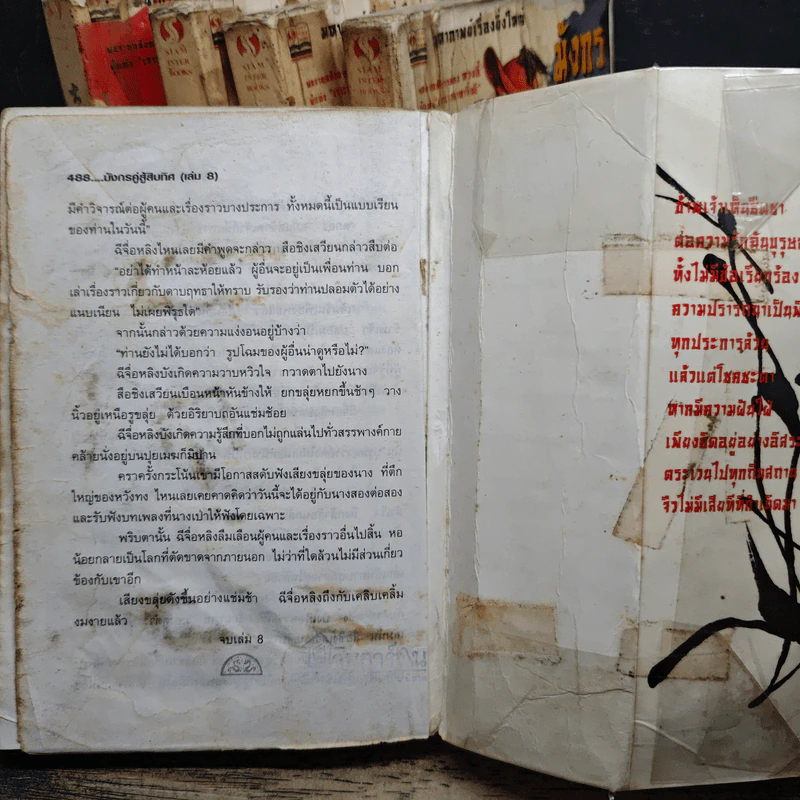 SIAM
INTER
BOOKS
SIAM
INTER
BOOKS
SIAM
INTER
BOOKS
มหากาพย์เรื่องยิ่งใหญ่
มังกร
488....มังกรคู่สู้สิบทิศ (เล่ม 8)
มีคำวิจารณ์ต่อผู้คนและเรื่องราวบางประการ ทั้งหมดนี้เป็นแบบเรียน
ของท่านในวันนี้"
ฉีจื่อหลิงไหนเลยมีคำพูดจะกล่าว สือชิงเสวียนกล่าวสืบต่อ
"อย่าได้ทำหน้าละห้อยแล้ว ผู้อื่นจะอยู่เป็นเพื่อนท่าน บอก
เล่าเรื่องราวเกี่ยวกับดาบฤทธาให้ทราบ รับรองว่าท่านปลอมตัวได้อย่าง
แนบเนียน ไม่เผยพิรุธใด"
จากนั้นกล่าวด้วยความแง่งอนอยู่บ้างว่า
"ท่านยังไม่ได้บอกว่า รูปโฉมของผู้อื่นน่าดูหรือไม่?"
ฉีจื่อหลิงบังเกิดความวาบหวิวใจ กวาดตาไปยังนาง
สือชิงเสวียนเบือนหน้าหันข้างให้ ยกขลุ่ยหยกขึ้นช้าๆ วาง
นิ้วอยู่เหนือรูขลุ่ย ด้วยอิริยาบถอันแช่มช้อย
ฉีจื่อหลิงบังเกิดความรู้สึกที่บอกไม่ถูกแล่นไปทั่วสรรพางค์กาย
คล้ายนั่งอยู่บนปุยเมฆก็มิปาน
คราครั้งกระโน้นเขามีโอกาสสดับฟังเสียงขลุ่ยของนาง ที่ตึก
ใหญ่ของหวังทง ไหนเลยเคยคาดคิดว่าวันนี้จะได้อยู่กับนางสองต่อสอง
และรับฟังบทเพลงที่นางเป่าให้ฟังโดยเฉพาะ
พริบตานั้น ฉีจื่อหลิงลืมเลือนผู้คนและเรื่องราวอื่นไปสิ้น หอ
น้อยกลายเป็นโลกที่ตัดขาดจากภายนอก ไม่ว่าที่ใดล้วนไม่มีส่วนเกี่ยว
ข้องกับเขาอีก
เสียงขลุ่ยดังขึ้นอย่างแช่มช้า ฉีจื่อหลิงถึงกับเคลิบเคลิ้ม
งมงายแล้ว
จบเล่ม 8
ข้าพเจ้าเต็มอิ่มชา
ต่อความรักอันบุรุษ
ทั้งไม่มีข้อเรียกร้อง
ความปรารถนาเป็นพิ
ทุกประการล้วน
แล้วแต่โชคชะตา
หากมีความฝันใฝ่
เพียงคิดอยู่อย่างอิสระ
ตระเวนไปทุกถิ่นสถาน